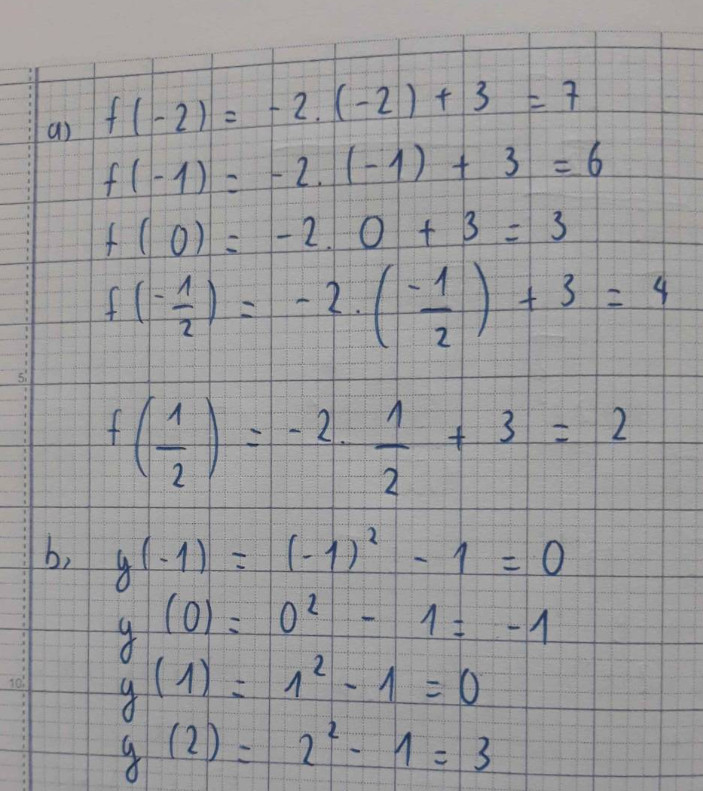 a) f(-2) = -2.(-2) + 3 = 7
f(-1) = -2.(-1) + 3 = 6
f(0) = -2.0 + 3 = 3
f(-1/2) = -2.(-1/2) + 3 = 4
5
f(1/2) = -2.1/2 + 3 = 2
b, y(-1) = (-1)² - 1 = 0
y(0) = 0² - 1 = -1
10
y(1) = 1² - 1 = 0
y(2) = 2² - 1 = 3